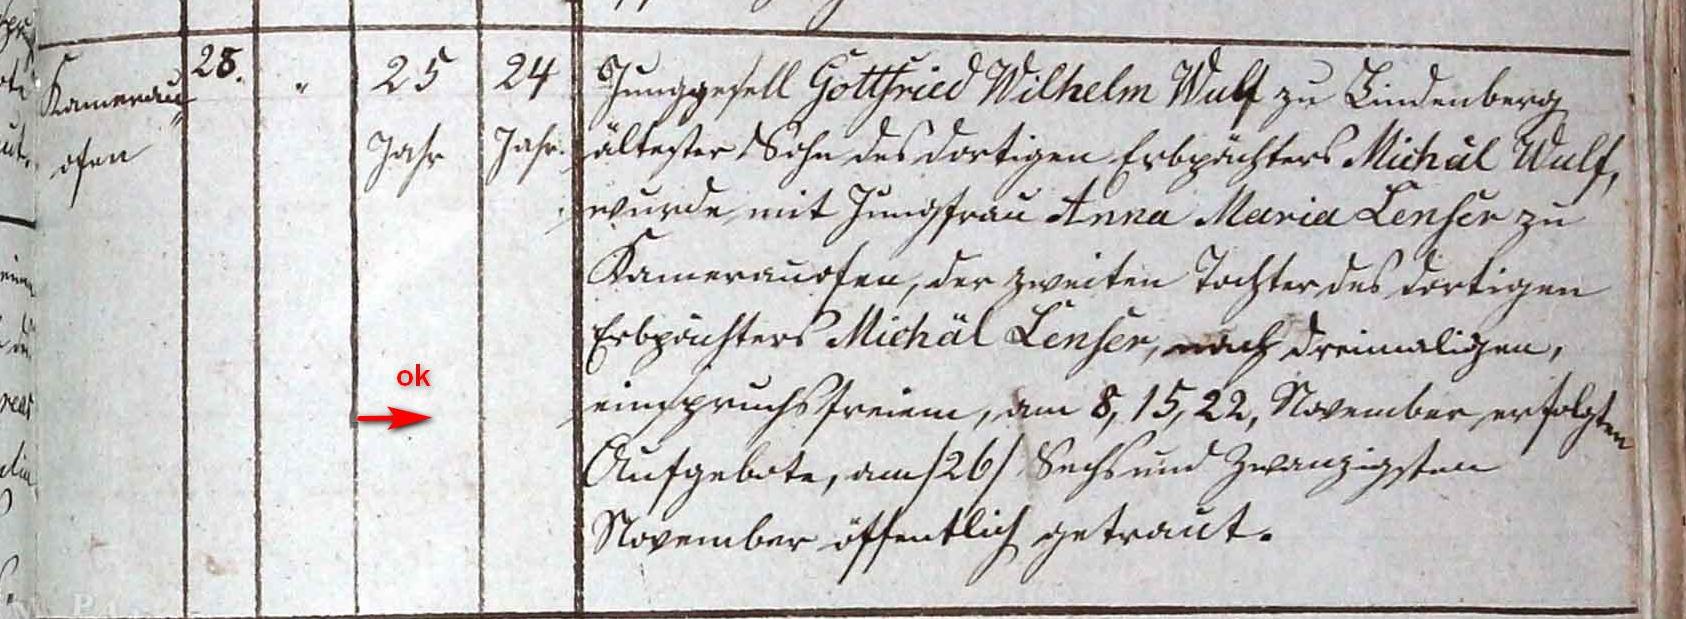 Kamerau⸗
ofen
28.
"
25
Jahr
24
Jahr.
Junggesell Gottfried Wilhelm Wulf zu Lindenberg
ältester Sohn des dortigen Erbpächters Michäl Wulf,
wurde mit Jungfrau Anna Maria Lenser zu
Kamerauofen, der zweiten Tochter des dortigen
Erbpächters Michäl Lenser, nach dreimaligen,
einspruchsfreiem, am 8, 15, 22, November erfolgten
Aufgebote, am /26/ Sechs und Zwanzigsten
November öffentlich getraut.
ok